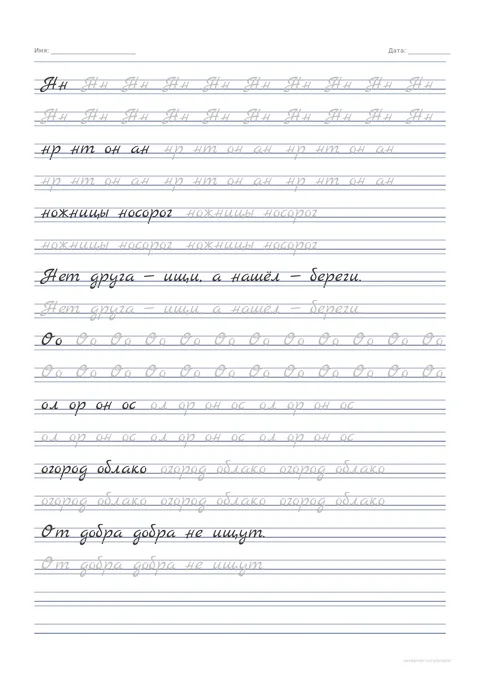 Имя: Дата:
Нн Нн Нн Нн Нн Нн Нн Нн Нн Нн
Нн Нн Нн Нн Нн Нн Нн Нн Нн Нн
нр нт он ан нр нт он ан нр нт он ан
нр нт он ан нр нт он ан нр нт он ан
ножницы носорог ножницы носорог
ножницы носорог ножницы носорог
Нет друга — ищи, а нашёл — береги.
Нет друга — ищи а нашёл — береги
Оо Оо Оо Оо Оо Оо Оо Оо Оо Оо Оо Оо
Оо Оо Оо Оо Оо Оо Оо Оо Оо Оо Оо Оо
ол ор он ос ол ор он ос ол ор он ос
ол ор он ос ол ор он ос ол ор он ос
огород облако огород облако огород облако
огород облако огород облако огород облако
От добра добра не ищут.
От добра добра не ищут